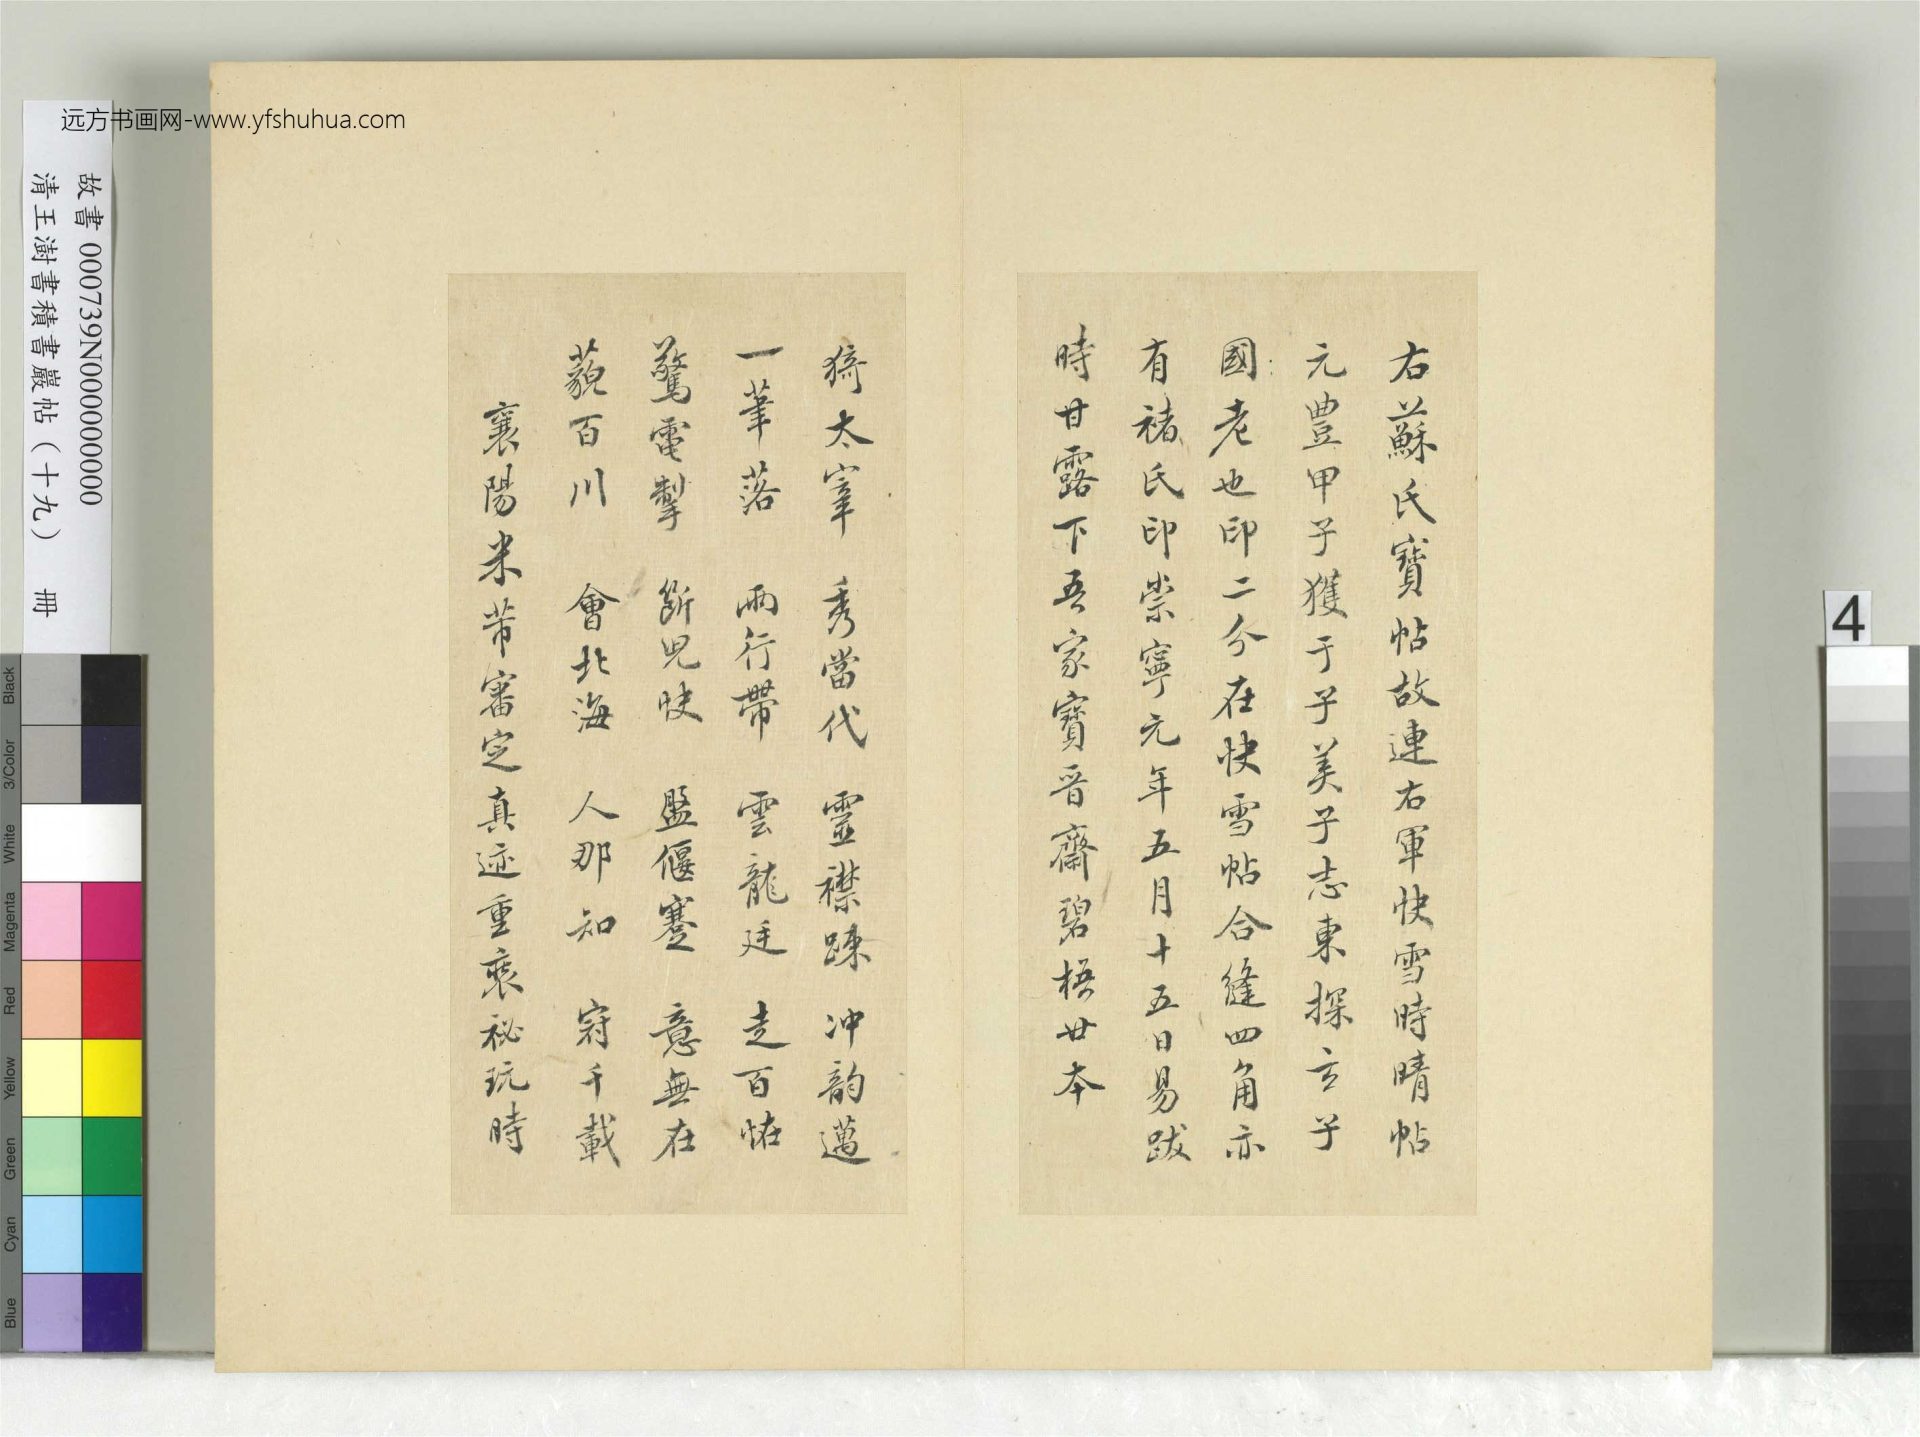 远方书画网-www.yfshuhua.com
故書 000739N000000000
清王澍書積書巖帖（十九） 冊
右蘇氏寶帖故連右軍快雪時晴帖
元豊甲子獲于子美子志東探玄子
國老也印二分在快雪帖合縫四角亦
有褚氏印崇寧元年五月十五日易跋
時甘露下吾家寶晉齋碧梧廿本
猗太宰 秀當代 靈襟踈 冲韵邁
一筆落 兩行帶 雲龍廷 走百怪
驚電掣 斷兕快 盬偃蹇 意無在
藐百川 會北海 人那知 冠千載
襄陽米芾審定真迹重裝祕玩時
4
Black
3/Color
White
Magenta
Red
Yellow
Green
Cyan
Blue